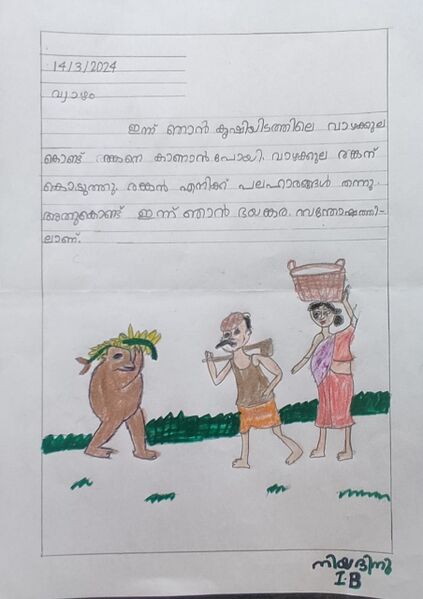 14/3/2024
വ്യാഴം
ഇന്ന് ഞാൻ കൃഷിയിടത്തിലെ വാഴക്കുല
കൊണ്ട് രങ്കനെ കാണാൻ പോയി. വാഴക്കുല രങ്കന്
കൊടുത്തു. രങ്കൻ എനിക്ക് പലഹാരങ്ങൾ തന്നു.
അതുകൊണ്ട് ഇന്ന് ഞാൻ ഭയങ്കര സന്തോഷത്തി-
ലാണ്.
നിയദിനു
I.B